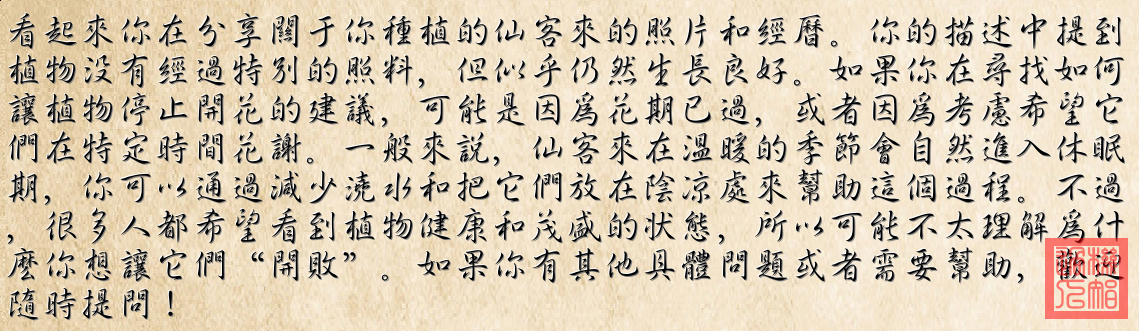 看起來你在分享關于你種植的仙客來的照片和經曆。你的描述中提到
植物没有經過特別的照料，但似乎仍然生長良好。如果你在尋找如何
讓植物停止開花的建議，可能是因爲花期已過，或者因爲考慮希望它
們在特定時間花謝。一般來説，仙客來在溫暖的季節會自然進入休眠
期，你可以通過減少澆水和把它們放在陰凉處來幫助這個過程。不過
，很多人都希望看到植物健康和茂盛的狀態，所以可能不太理解爲什
麽你想讓它們“開敗”。如果你有其他具體問題或者需要幫助，歡迎
隨時提問！